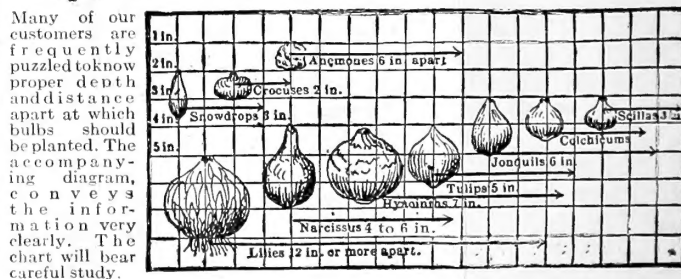 Many of our
customers are
frequently
puzzled to know
proper depth
and distance
apart at which
bulbs should
be planted. The
accompany-
ing diagram,
conveys
the infor-
mation very
clearly. The
chart will bear
careful study.
1 in.
2 in.
3 in.
4 in.
5 in.
Anemones 6 in. apart
Crocuses 2 in.
Snowdrops 3 in.
Scillas 3 in.
Colchicums
Jonquils 6 in.
Tulips 5 in.
Hyacinths 7 in.
Narcissus 4 to 6 in.
Lilies 12 in. or more apart.